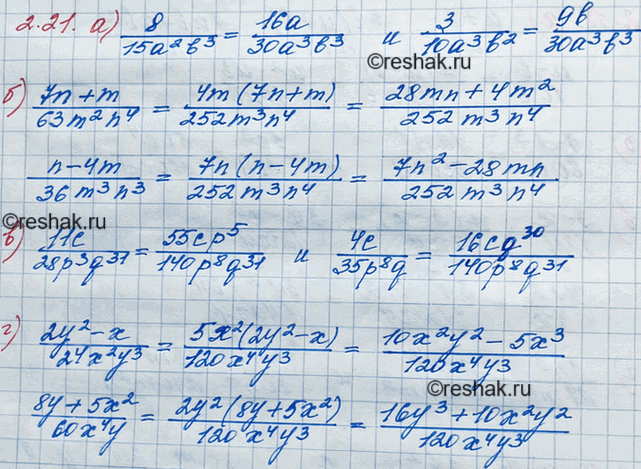 2.21. а) 8/(15a²b³) = 16a/(30a³b³) и 3/(10a³b²) = 9b/(30a³b³)
©reshak.ru
б) (7n+m)/(63m²n⁴) = 4m(7n+m)/(252m³n⁴) = (28mn+4m²)/(252m³n⁴)
(n-4m)/(36m³n³) = 7n(n-4m)/(252m³n⁴) = (7n²-28mn)/(252m³n⁴)
©reshak.ru
в) 11c/(28p³q³¹) = 55cp⁵/(140p⁸q³¹) и 4c/(35p⁸q) = 16cq³⁰/(140p⁸q³¹)
г) (2y²-x)/(24x²y³) = 5x²(2y²-x)/(120x⁴y³) = (10x²y²-5x³)/(120x⁴y³)
©reshak.ru
(8y+5x²)/(60x⁴y) = 2y²(8y+5x²)/(120x⁴y³) = (16y³+10x²y²)/(120x⁴y³)